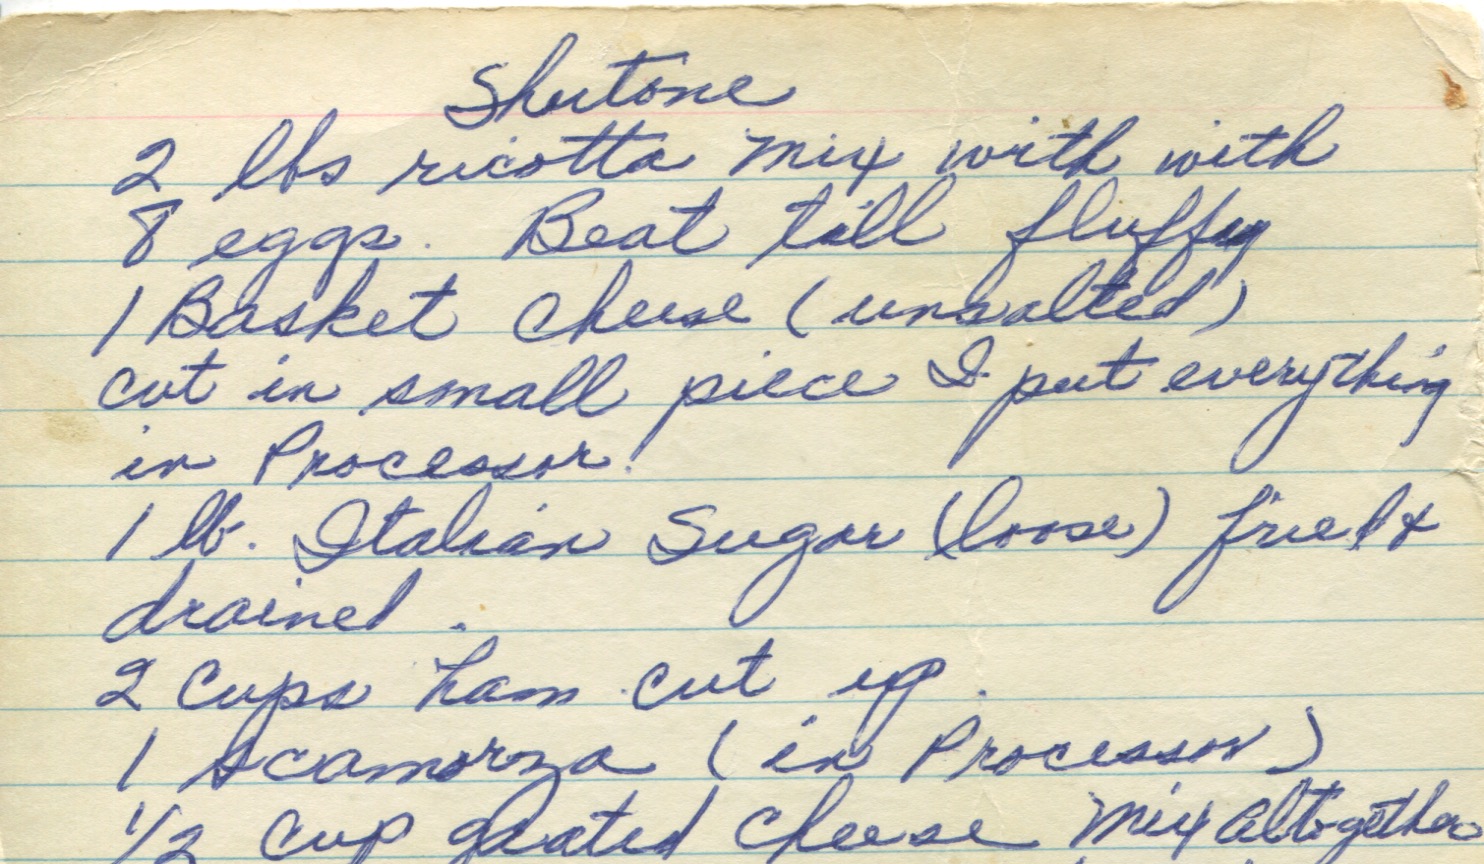 Shutone
2 lbs ricotta mix with with
8 eggs. Beat till fluffy
1 Basket Cheese (unsalted)
cut in small piece I put everything
in Processor.
1 lb. Italian Sugar (loose) fried &
drained.
2 Cups ham cut up.
1 Scamorza (in Processor)
1/2 Cup grated Cheese Mix altogether